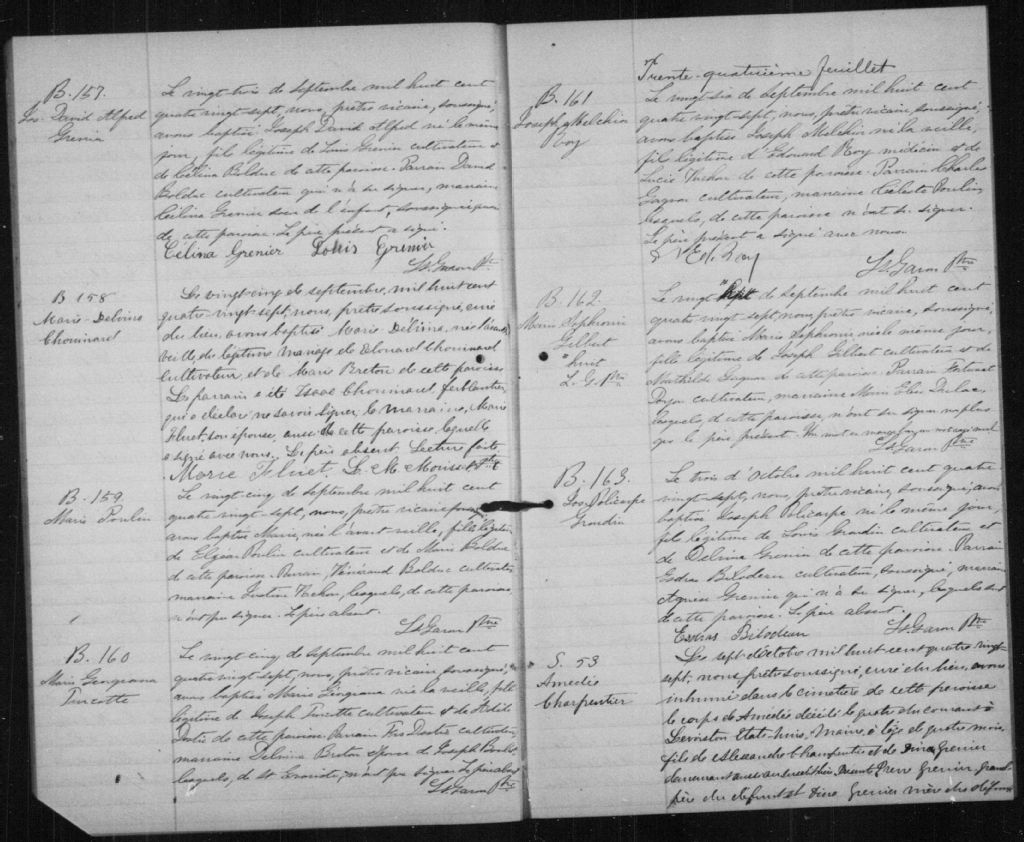 B. 157.
Jos. David Alfred
Grenier
Le vingt-trois de Septembre mil huit cent
quatre vingt-sept, nous, prêtre vicaire, soussigné,
avons baptisé Joseph David Alfred né le même
jour, fils légitime de Louis Grenier cultivateur et
de Célina Bolduc de cette paroisse. Parrain David
Bolduc cultivateur qui n'a su signer, marraine
Célina Grenier soeur de l'enfant, soussignée
de cette paroisse. Le père présent a signé.
Célina Grenier Louis Grenier
Ls. Garon Ptre
B 158
Marie-Delvina
Chouinard
Le vingt-cinq de septembre, mil huit cent
quatre-vingt-sept, nous, prêtre soussigné, curé
du lieu, avons baptisé Marie Délvina, née
veille, du légitime mariage de Edouard Chouinard
cultivateur, et de Marie Breton de cette paroisse
Le parrain a été Isaac Chouinard, ferblantier,
qui a déclaré ne savoir signer, la marraine, Marie
Fluet, son épouse, aussi de cette paroisse, laquelle
a signé avec nous. Le père absent. Lecture faite
Marie Fluet. Ptre
B. 159.
Marie Poulin
Le vingt cinq de Septembre mil huit cent
quatre vingt-sept, nous, prêtre vicaire
avons baptisé Marie, née l'avant-veille, fille légitime
de Elzéar Poulin cultivateur et de Marie Bolduc
de cette paroisse. Parrain, Vénérand Bolduc cultivateur
marraine Vachon, lesquels, de cette paroisse,
n'ont pu signer. Le père absent.
Ls. Garon Ptre
B. 160
Marie Georgeana
Turcotte
Le vingt cinq de septembre mil huit cent
quatre vingt-sept, nous, prêtre vicaire soussigné,
avons baptisé Marie Georgeana née la veille, fille
légitime de Joseph Turcotte cultivateur et de
de cette paroisse. Parrain cultivateur,
marraine Delvina Breton épouse de Joseph
lesquels, de St n'ont pu signer. Le père absent
Ls. Garon Ptre
Trente-quatrième feuillet
B. 161
Joseph Melchior
Roy
Le vingt-six de Septembre mil huit cent
quatre vingt-sept, nous, prêtre vicaire, soussigné,
avons baptisé Joseph Melchior né la veille,
fils légitime d'Edouard Roy médecin et de
Lucie Vachon de cette paroisse. Parrain Charles
Gagnon cultivateur, marraine Céleste Poulin,
lesquels, de cette paroisse n'ont su signer.
Le père présent a signé avec nous.
Ed. Roy
Ls. Garon Ptre
B. 162.
Marie Sophronie
Gilbert
"huit
L. G. Ptre
Le vingt de Septembre mil huit cent
quatre vingt sept, nous prêtre vicaire, soussigné,
avons baptisé Marie Sophronie née le même jour,
fille légitime de Joseph Gilbert cultivateur et de
Mathilde Gagnon de cette paroisse. Parrain Fortunat
cultivateur, marraine Marie Dulac,
lesquels, de cette paroisse, n'ont su signer non plus
que le père présent. Un mot en marge bon un mot rayé nul
Ls. Garon Ptre
B. 163.
Jos. Policarpe
Grondin
Le trois d'Octobre mil huit cent quatre
vingt-sept, nous, prêtre vicaire, soussigné, avons
baptisé Joseph Policarpe né le même jour,
fils légitime de Louis Grondin cultivateur et
de Delvina Grenier de cette paroisse. Parrain
Bilodeau cultivateur, soussigné, marraine
Agnès Grenier qui n'a su signer, lesquels sont
de cette paroisse. Le père absent.
Bilodeau Ls. Garon Ptre
S. 53
Amédée
Charpentier
Le sept d'Octobre mil huit cent quatre vingt
sept, nous, prêtre soussigné, curé du lieu, avons
inhumé dans le cimetière de cette paroisse
le corps de Amédée décédé le quatre du courant à
Lewiston Etats-Unis, Maine, à l'âge de quatre mois,
fils de Alexandre Charpentier et de Dina Grenier
Présents Pierre Grenier grand-
père du défunt et Dina Grenier mère du défunt